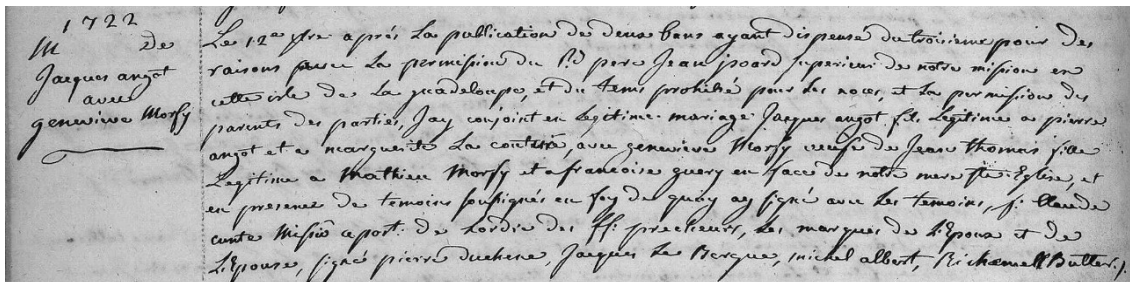 1722
M de
Jacques angot
avec
geneviève Morfy
Le 12e xbre après La publication de deux bans ayant dispensé du troisieme pour des
raisons avec La permission du Rd pere Jean joard superieur de notre mission en
cette isle de La guadeloupe, et du tems prohibé pour Les noces, et La permission des
parents des parties, Jay conjoint en Legitime mariage Jacques angot fils Legitime a pierre
angot et a marguerite La contrie, avec geneviève Morfy veuve de Jean Thomas fille
Legitime a Mathieu Morfy et a francoise guery en face de notre mere ste Eglise, et
en presence de temoins soussignés en foy de quoy ay signé avec Les temoins, f. Claude
cunte Missre apost. de Lordre des ff. precheurs, Les marques de L'Epoux et de
L'Epouse, signé pierre duchene, Jacques Le Bergue, michel albert, Butler ./.